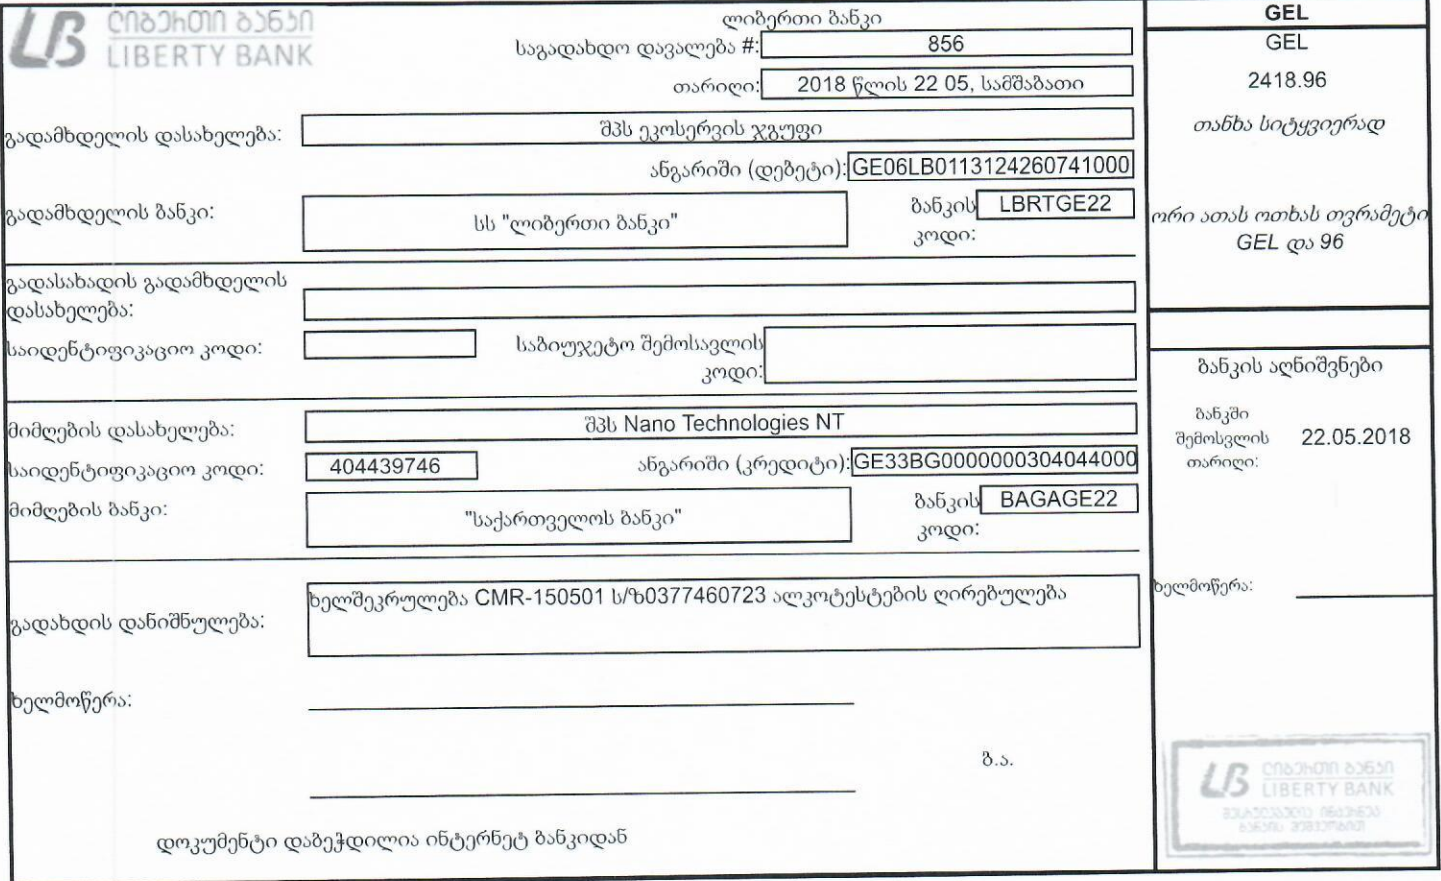 ᲚᲘᲑᲔᲠᲗᲘ ᲑᲐᲜᲙᲘ
LIBERTY BANK
ლიბერთი ბანკი
საგადახდო დავალება #: 856
თარიღი: 2018 წლის 22 05, სამშაბათი
გადამხდელის დასახელება: შპს ეკოსერვის ჯგუფი
ანგარიში (დებეტი): GE06LB0113124260741000
გადამხდელის ბანკი: სს "ლიბერთი ბანკი" ბანკის კოდი: LBRTGE22
გადასახადის გადამხდელის
დასახელება:
საიდენტიფიკაციო კოდი: საბიუჯეტო შემოსავლის
კოდი:
მიმღების დასახელება: შპს Nano Technologies NT
საიდენტიფიკაციო კოდი: 404439746 ანგარიში (კრედიტი): GE33BG0000000304044000
მიმღების ბანკი: "საქართველოს ბანკი" ბანკის კოდი: BAGAGE22
გადახდის დანიშნულება: ხელშეკრულება CMR-150501 ს/ზ0377460723 ალკოტესტების ღირებულება
ხელმოწერა:
ბ.ა.
დოკუმენტი დაბეჭდილია ინტერნეტ ბანკიდან
GEL
GEL
2418.96
თანხა სიტყვიერად
ორი ათას ოთხას თვრამეტი
GEL და 96
ბანკის აღნიშვნები
ბანკში
შემოსვლის 22.05.2018
თარიღი:
ხელმოწერა:
ᲚᲘᲑᲔᲠᲗᲘ ᲑᲐᲜᲙᲘ
LIBERTY BANK